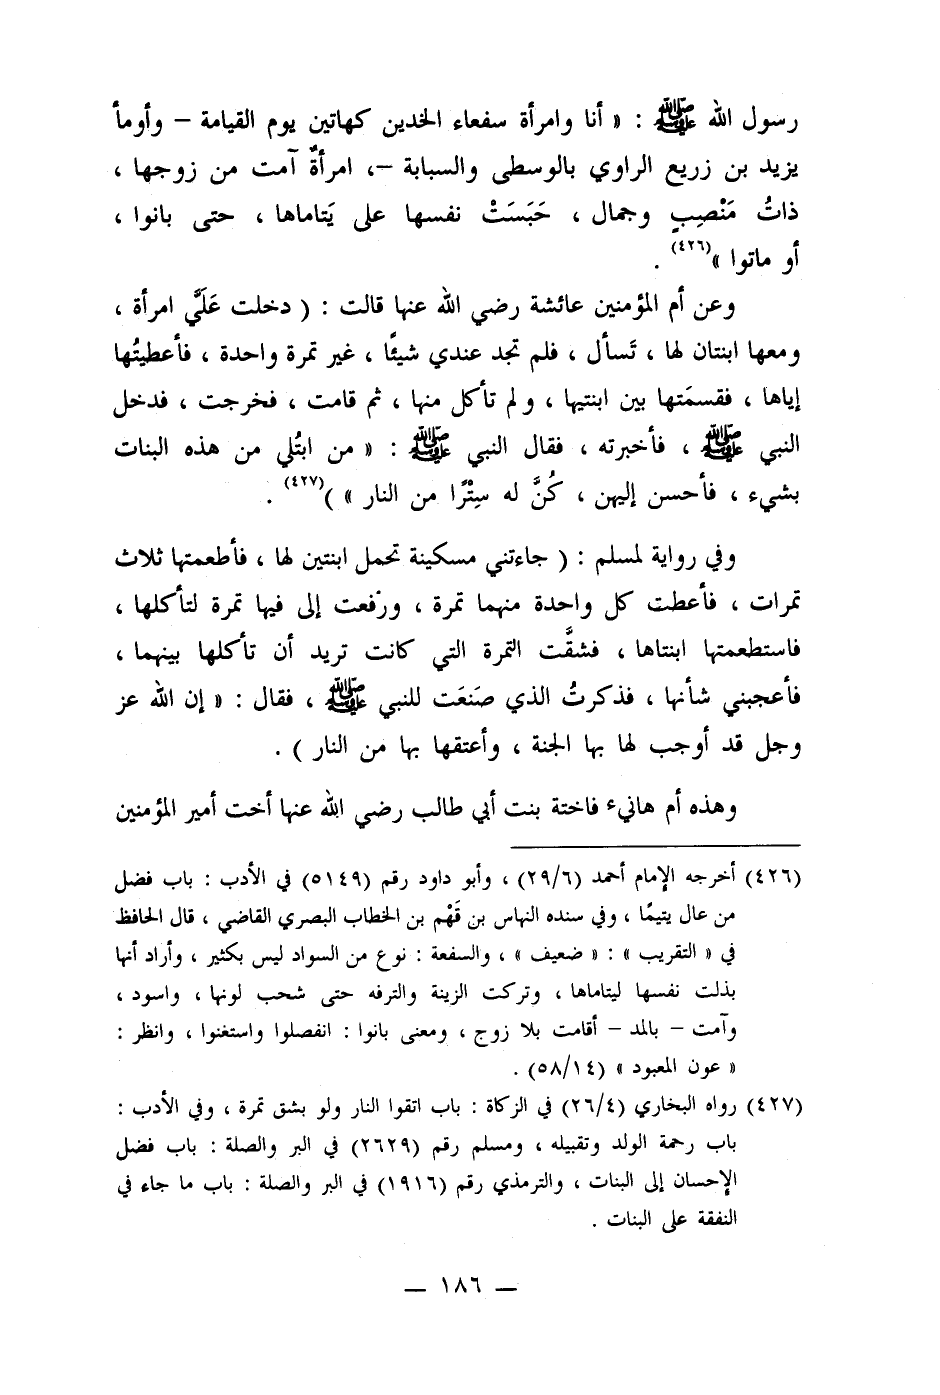 رسول الله ﷺ : « أنا وامرأة سفعاء الخدين كهاتين يوم القيامة – وأومأ
يزيد بن زريع الراوي بالوسطى والسبابة –، امرأةٌ آمت من زوجها ،
ذاتُ مَنْصِبٍ وجمال ، حَبَسَتْ نفسها على يَتاماها ، حتى بانوا ،
أو ماتوا »(٤٢٦) .
وعن أم المؤمنين عائشة رضي الله عنها قالت : ( دخلت عَلَيَّ امرأة ،
ومعها ابنتان لها ، تَسأل ، فلم تجد عندي شيئًا ، غير تمرة واحدة ، فأعطيتُها
إياها ، فقسمَتها بين ابنتيها ، ولم تأكل منها ، ثم قامت ، فخرجت ، فدخل
النبي ﷺ ، فأخبرته ، فقال النبي ﷺ : « من ابتُلي من هذه البنات
بشيء ، فأحسن إليهن ، كُنَّ له سِتْرًا من النار » )(٤٢٧) .
وفي رواية لمسلم : ( جاءتني مسكينة تحمل ابنتين لها ، فأطعمتها ثلاث
تمرات ، فأعطت كل واحدة منهما تمرة ، ورفعت إلى فيها تمرة لتأكلها ،
فاستطعمتها ابنتاها ، فشقَّت التمرة التي كانت تريد أن تأكلها بينهما ،
فأعجبني شأنها ، فذكرتُ الذي صَنعَت للنبي ﷺ ، فقال : « إن الله عز
وجل قد أوجب لها بها الجنة ، وأعتقها بها من النار ) .
وهذه أم هانيء فاختة بنت أبي طالب رضي الله عنها أخت أمير المؤمنين
(٤٢٦) أخرجه الإمام أحمد (٢٩/٦) ، وأبو داود رقم (٥١٤٩) في الأدب : باب فضل
من عال يتيمًا ، وفي سنده النهاس بن قَهْم بن الخطاب البصري القاضي ، قال الحافظ
في « التقريب » : « ضعيف » ، والسفعة : نوع من السواد ليس بكثير ، وأراد أنها
بذلت نفسها ليتاماها ، وتركت الزينة والترفه حتى شحب لونها ، واسود ،
وآمت – بالمد – أقامت بلا زوج ، ومعنى بانوا : انفصلوا واستغنوا ، وانظر :
« عون المعبود » (٥٨/١٤) .
(٤٢٧) رواه البخاري (٢٦/٤) في الزكاة : باب اتقوا النار ولو بشق تمرة ، وفي الأدب :
باب رحمة الولد وتقبيله ، ومسلم رقم (٢٦٢٩) في البر والصلة : باب فضل
الإحسان إلى البنات ، والترمذي رقم (١٩١٦) في البر والصلة : باب ما جاء في
النفقة على البنات .
— ١٨٦ —